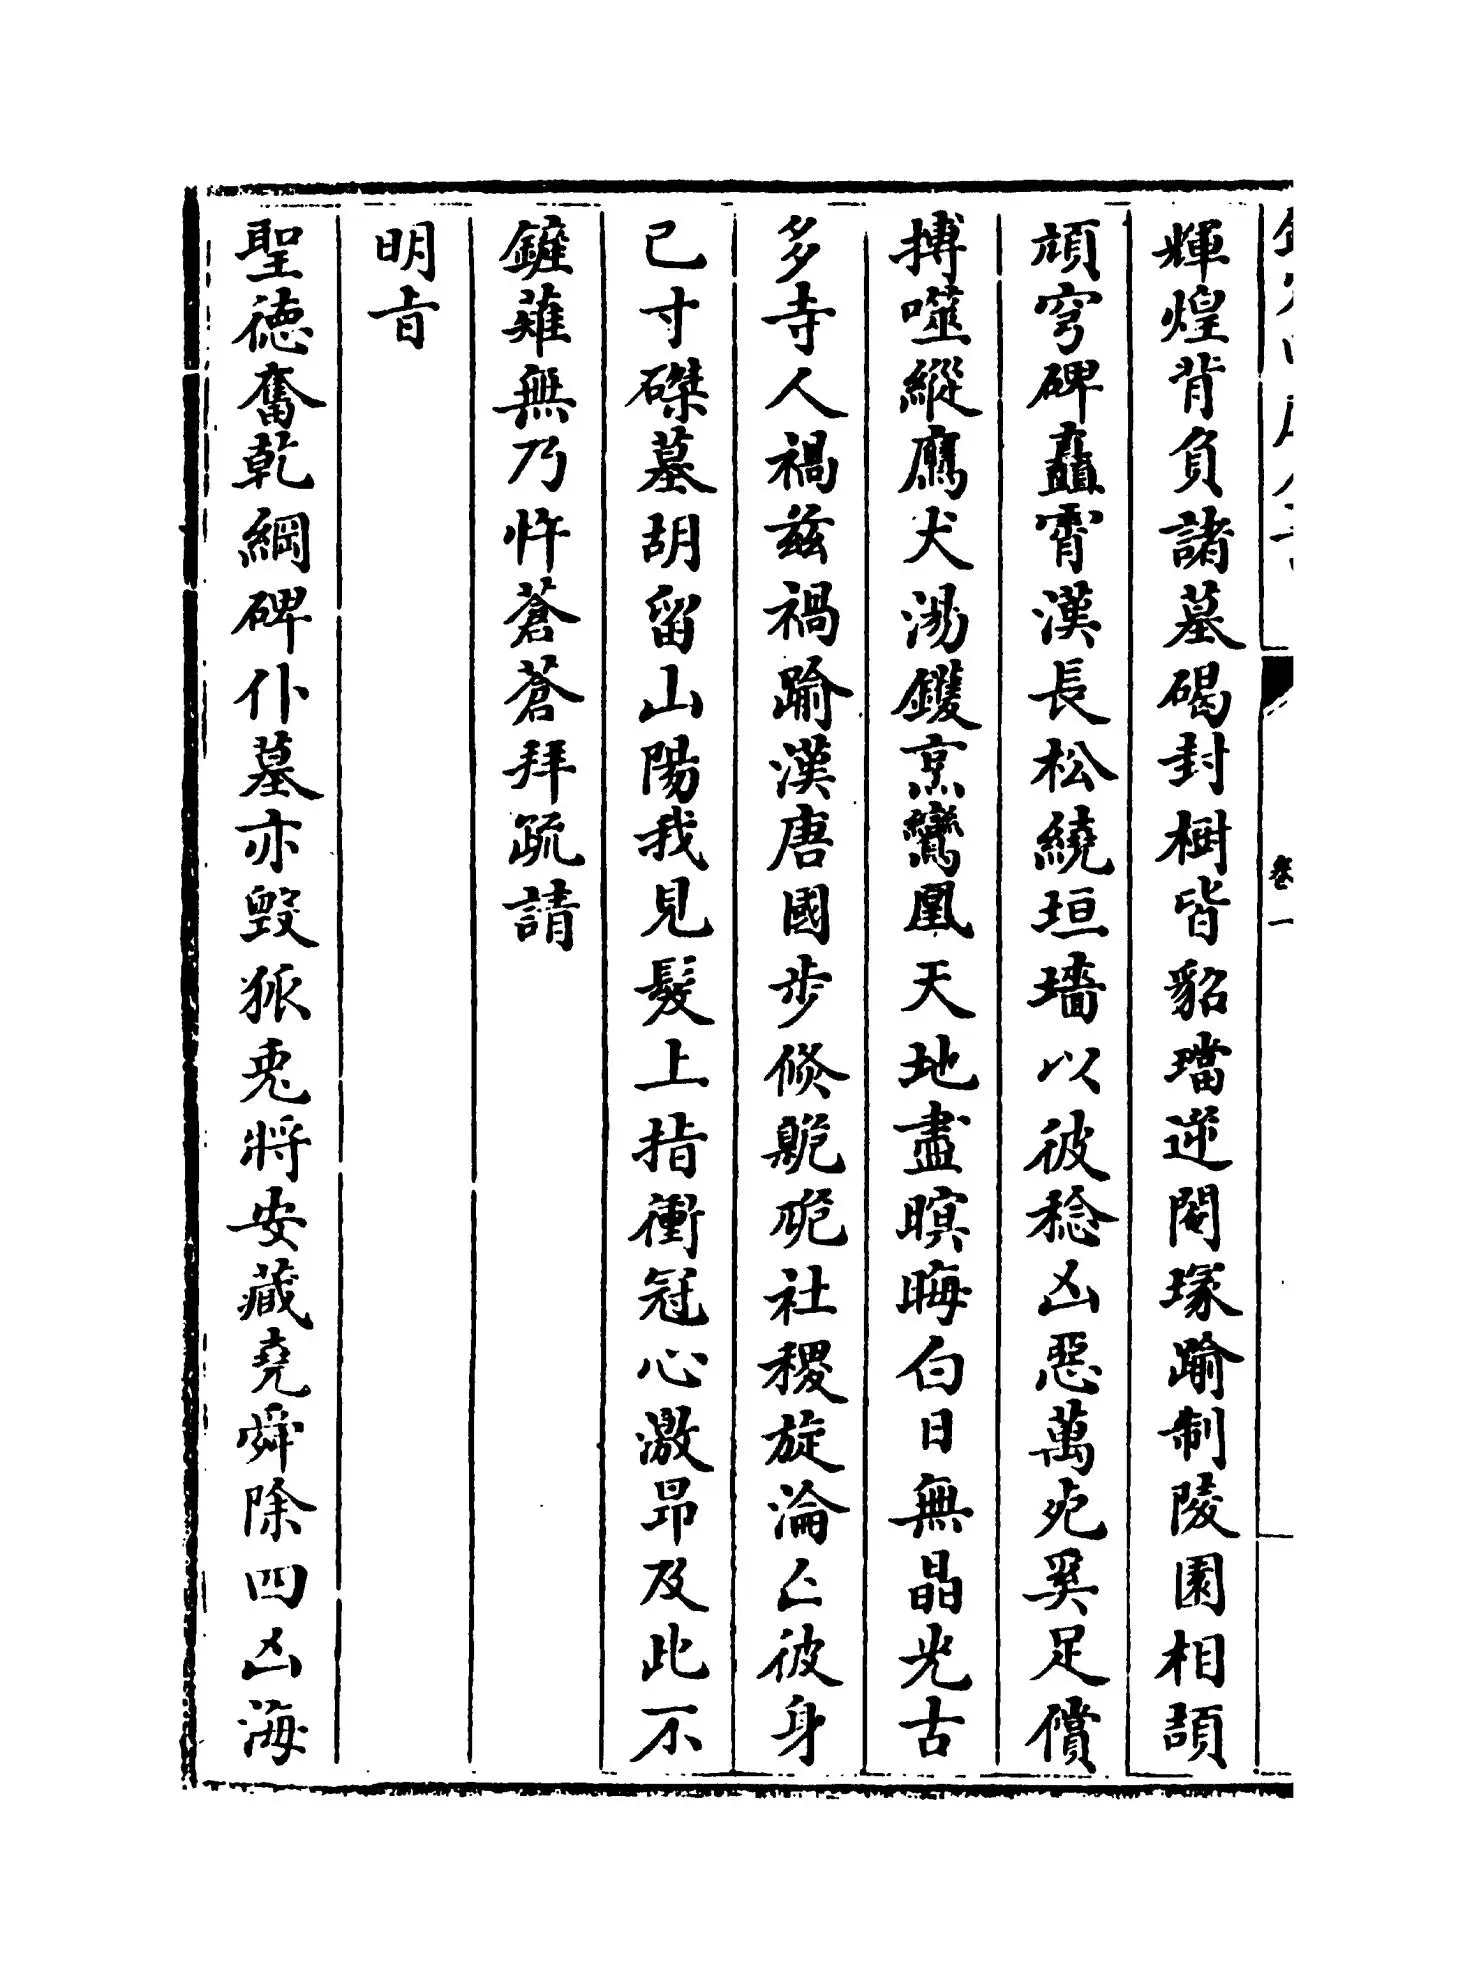 輝煌背負諸墓碣封樹皆貂璫逆閹塚踰制陵園相頡
頏穹碑矗霄漢長松繞垣墻以彼稔凶惡萬死奚足償
搏噬縱鷹犬湯鑊烹鸞凰天地盡暝晦白日無晶光古
多寺人禍兹禍踰漢唐國步倐臲卼社稷旋淪亡彼身
已寸磔墓胡留山陽我見髮上指衝冠心激昂及此不
鏟薙無乃忤蒼蒼拜疏請
明旨
聖徳奮乾綱碑仆墓亦毁狐兎將安藏堯舜除四凶海
卷一